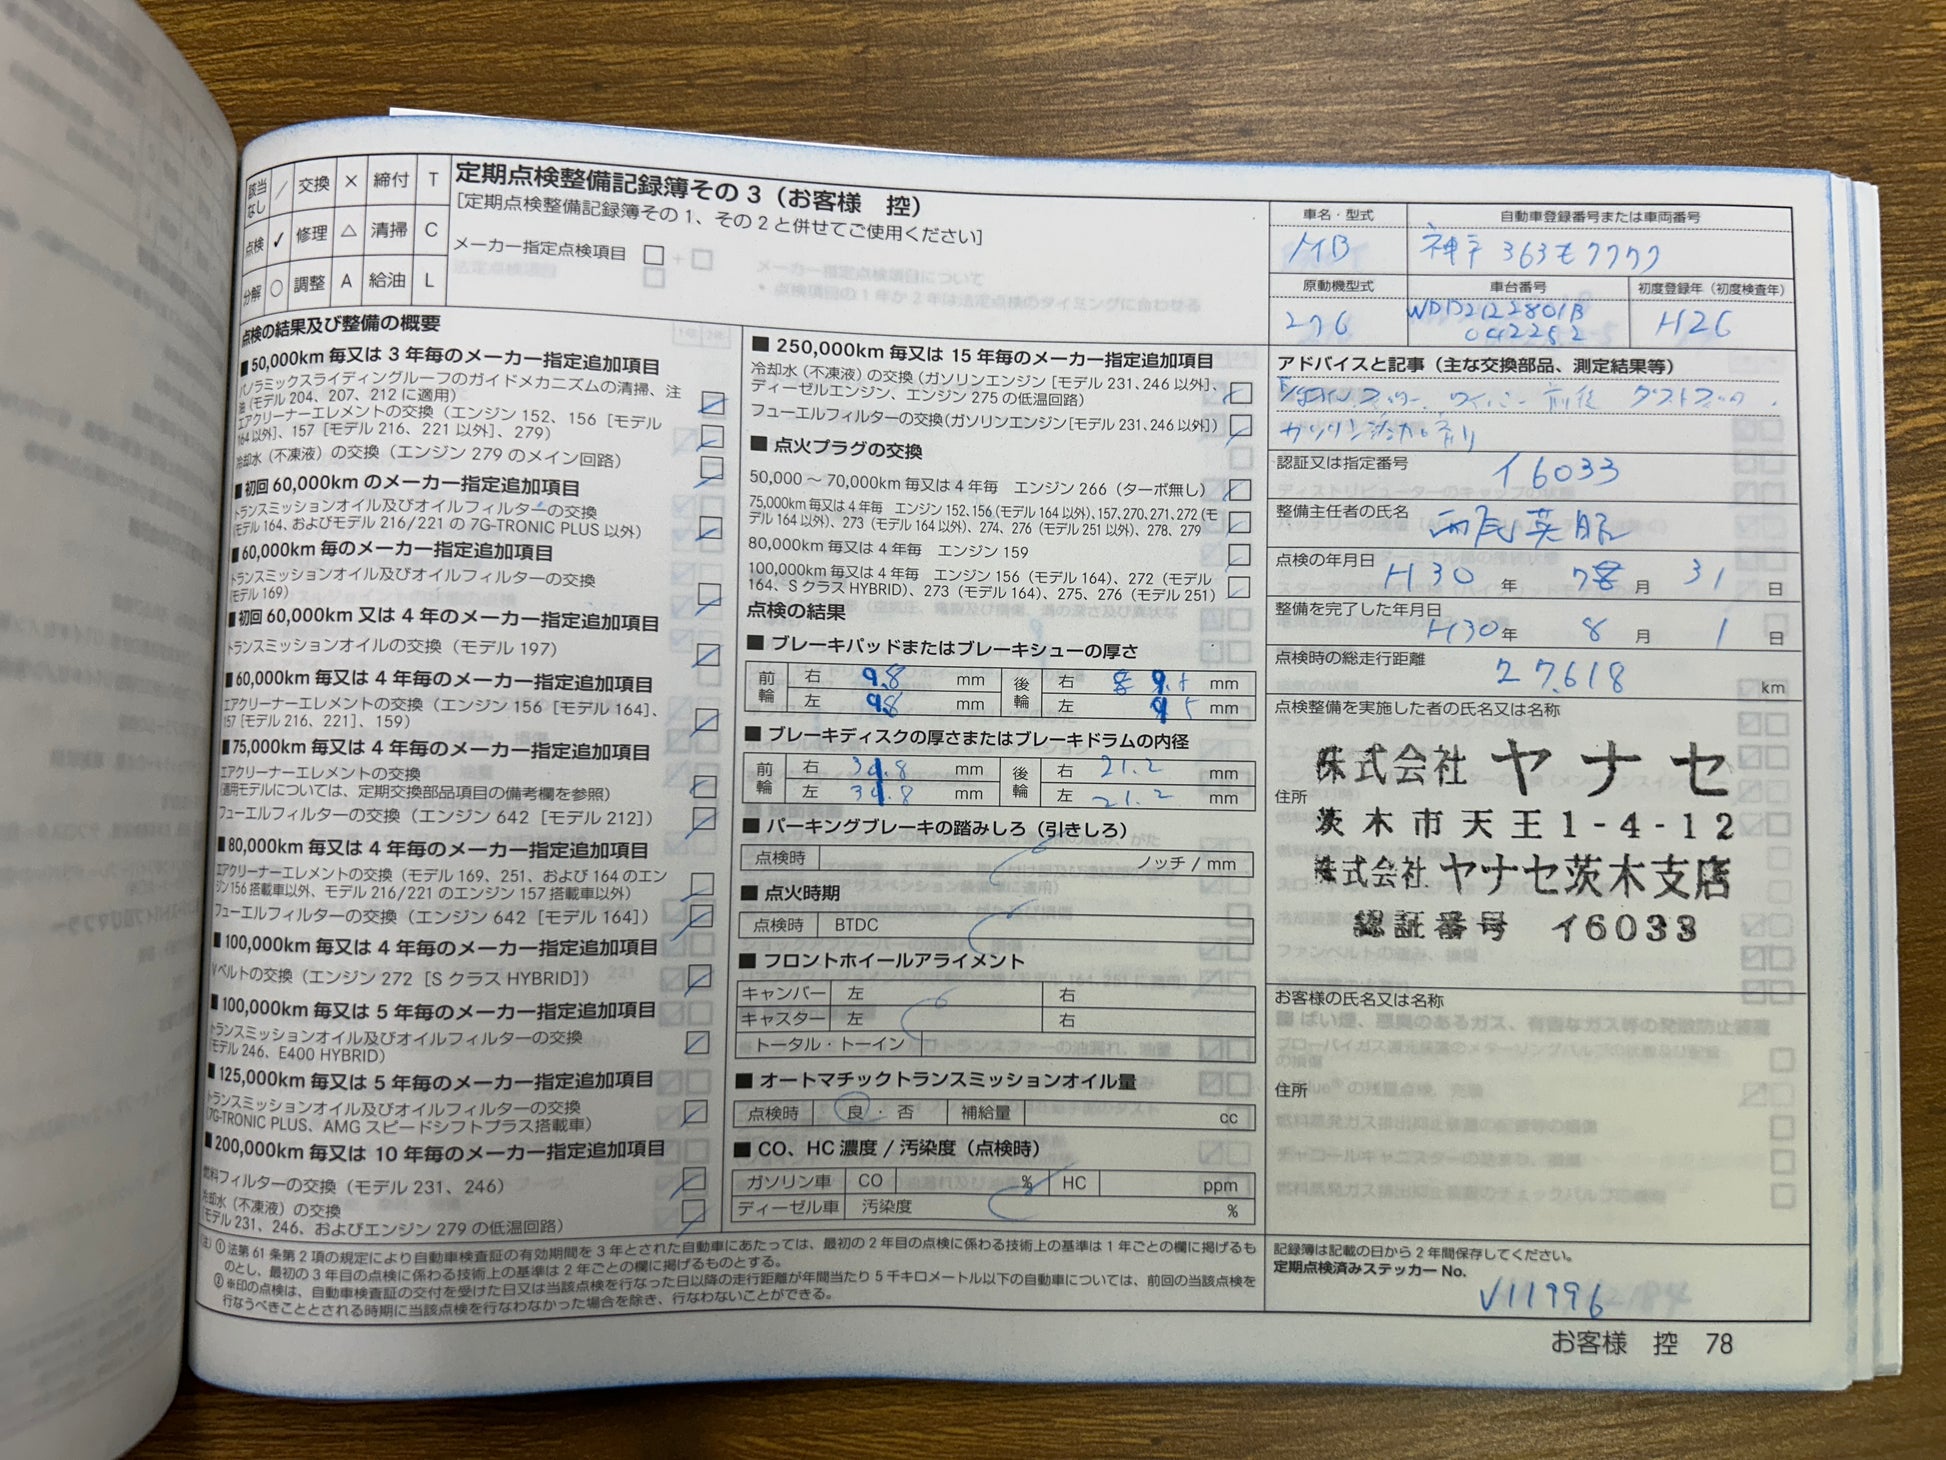 該当なし / 交換 × 締付 T
点検 ✓ 修理 △ 清掃 C
分解 ○ 調整 A 給油 L
定期点検整備記録簿その3（お客様 控）
[定期点検整備記録簿その1、その2と併せてご使用ください]
メーカー指定点検項目
点検の結果及び整備の概要
■ 50,000km 毎又は 3 年毎のメーカー指定追加項目
パノラミックスライディングルーフのガイドメカニズムの清掃、注
油（モデル 204、207、212 に適用）
エアクリーナーエレメントの交換（エンジン 152、156［モデル
164 以外］、157［モデル 216、221 以外］、279）
冷却水（不凍液）の交換（エンジン 279 のメイン回路）
■ 初回 60,000km のメーカー指定追加項目
トランスミッションオイル及びオイルフィルターの交換
（モデル 164、およびモデル 216/221 の 7G-TRONIC PLUS 以外）
■ 60,000km 毎のメーカー指定追加項目
トランスミッションオイル及びオイルフィルターの交換
（モデル 169）
■ 初回 60,000km 又は 4 年毎のメーカー指定追加項目
トランスミッションオイルの交換（モデル 197）
■ 60,000km 毎又は 4 年毎のメーカー指定追加項目
エアクリーナーエレメントの交換（エンジン 156［モデル 164］、
157［モデル 216、221］、159）
■ 75,000km 毎又は 4 年毎のメーカー指定追加項目
エアクリーナーエレメントの交換
（適用モデルについては、定期交換部品項目の備考欄を参照）
フューエルフィルターの交換（エンジン 642［モデル 212］）
■ 80,000km 毎又は 4 年毎のメーカー指定追加項目
エアクリーナーエレメントの交換（モデル 169、251、および 164 のエン
ジン 156 搭載車以外、モデル 216/221 のエンジン 157 搭載車以外）
フューエルフィルターの交換（エンジン 642［モデル 164］）
■ 100,000km 毎又は 4 年毎のメーカー指定追加項目
V ベルトの交換（エンジン 272［S クラス HYBRID］）
■ 100,000km 毎又は 5 年毎のメーカー指定追加項目
トランスミッションオイル及びオイルフィルターの交換
（モデル 246、E400 HYBRID）
■ 125,000km 毎又は 5 年毎のメーカー指定追加項目
トランスミッションオイル及びオイルフィルターの交換
（7G-TRONIC PLUS、AMG スピードシフトプラス搭載車）
■ 200,000km 毎又は 10 年毎のメーカー指定追加項目
燃料フィルターの交換（モデル 231、246）
冷却水（不凍液）の交換
（モデル 231、246、およびエンジン 279 の低温回路）
■ 250,000km 毎又は 15 年毎のメーカー指定追加項目
冷却水（不凍液）の交換（ガソリンエンジン［モデル 231、246 以外］、
ディーゼルエンジン、エンジン 275 の低温回路）
フューエルフィルターの交換（ガソリンエンジン［モデル 231、246 以外］）
■ 点火プラグの交換
50,000 〜 70,000km 毎又は 4 年毎 エンジン 266（ターボ無し）
75,000km 毎又は 4 年毎 エンジン 152、156（モデル 164 以外）、157、270、271、272（モ
デル 164 以外）、273（モデル 164 以外）、274、276（モデル 251 以外）、278、279
80,000km 毎又は 4 年毎 エンジン 159
100,000km 毎又は 4 年毎 エンジン 156（モデル 164）、272（モデル
164、S クラス HYBRID）、273（モデル 164）、275、276（モデル 251）
点検の結果
■ ブレーキパッドまたはブレーキシューの厚さ
前輪 右 9.8 mm 後輪 右 mm
左 9.8 mm 左 mm
■ ブレーキディスクの厚さまたはブレーキドラムの内径
前輪 右 mm 後輪 右 21.2 mm
左 mm 左 21.2 mm
■ パーキングブレーキの踏みしろ（引きしろ）
点検時 ノッチ / mm
■ 点火時期
点検時 BTDC
■ フロントホイールアライメント
キャンバー 左 右
キャスター 左 右
トータル・トーイン
■ オートマチックトランスミッションオイル量
点検時 良 ・ 否 補給量 cc
■ CO、HC 濃度 / 汚染度（点検時）
ガソリン車 CO % HC ppm
ディーゼル車 汚染度 %
（注）① 法第 61 条第 2 項の規定により自動車検査証の有効期間を 3 年とされた自動車にあたっては、最初の 2 年目の点検に係わる技術上の基準は 1 年ごとの欄に掲げるも
のとし、最初の 3 年目の点検に係わる技術上の基準は 2 年ごとの欄に掲げるものとする。
② ※印の点検は、自動車検査証の交付を受けた日又は当該点検を行なった日以降の走行距離が年間当たり 5 千キロメートル以下の自動車については、前回の当該点検を
行なうべきこととされる時期に当該点検を行なわなかった場合を除き、行なわないことができる。
車名・型式 自動車登録番号または車両番号
MB 神戸 363モ7777
原動機型式 車台番号 初度登録年（初度検査年）
276 WDD2122801B 042282 H26
アドバイスと記事（主な交換部品、測定結果等）
ワイパー 前後 ダストブック
ガソリン添加剤
認証又は指定番号 イ6033
整備主任者の氏名 西尾英昭
点検の年月日 H30 年 月 31 日
整備を完了した年月日
H30 年 8 月 1 日
点検時の総走行距離 27,618 km
点検整備を実施した者の氏名又は名称
株式会社 ヤナセ
住所
茨木市天王1-4-12
株式会社 ヤナセ茨木支店
認証番号 イ6033
お客様の氏名又は名称
住所
記録簿は記載の日から 2 年間保存してください。
定期点検済みステッカー No.
V11996
お客様 控 78